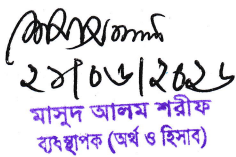 ২৯/০৬/২০২৬
মাসুদ আলম শরীফ
ব্যবস্থাপক (অর্থ ও হিসাব)